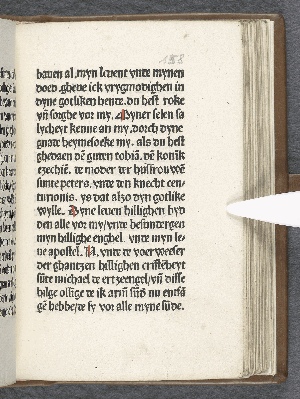 158
bauen al. myn leuent vnte mynen
doed. gheue ick vrygmodighen in
dyne gotliken hente. du hest roke
vñ sorghe vor my. Dyner selen sa
lycheyt kenne an my. dorch dyne
gnade heymesoeke my. als du hest
ghedaen dē guten tobiā. dē konik
ezechiē. te moder der husfrouwē
sunte peters. vnte den knecht cen⸗
turionis. ys dat also dyn gotlike
wylle. Dyne leuen hillighen byd
den alle vor my/vnte besundergen
myn hillighe enghel. vnte myn le⸗
ue apostel. N. vnte te voerweser
der ghantzen hillighen cristēheyt
sūte michael te ertzeengel/vñ disse
hilge
te ik arm
nu entfā
gē hebbe/te sy vor alle myne sūde.